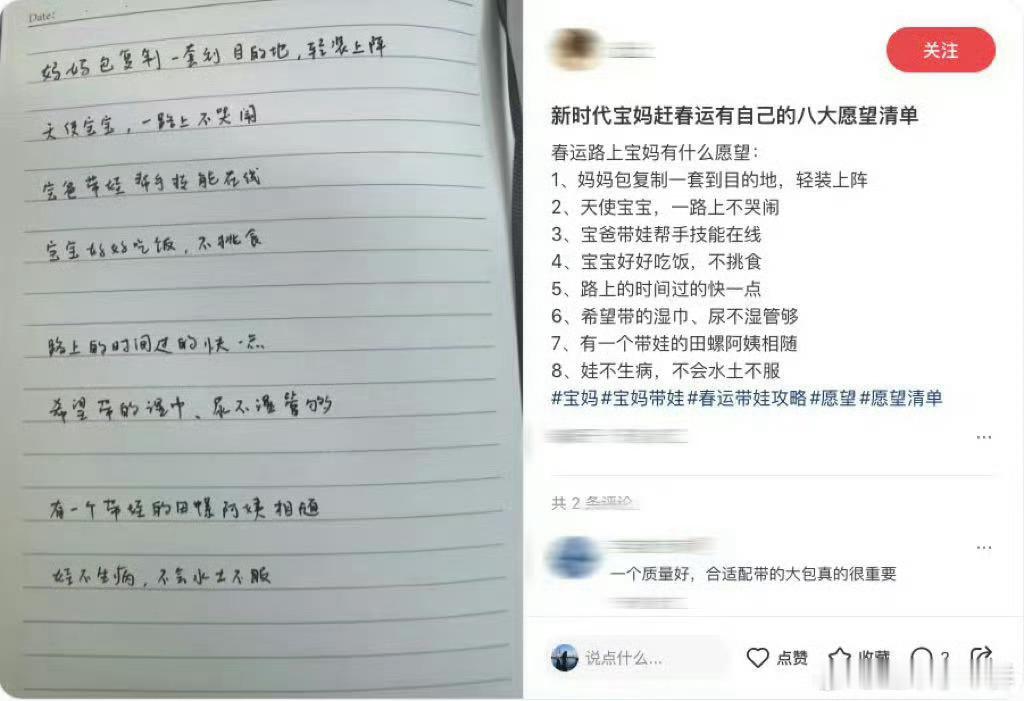 Date:
妈妈包复制一套到目的地，轻装上阵
天使宝宝，一路上不哭闹
宝爸带娃帮手技能在线
宝宝好好吃饭，不挑食
路上的时间过的快一点
希望带的湿巾、尿不湿管够
有一个带娃的田螺阿姨相随
娃不生病，不会水土不服
关注
新时代宝妈赶春运有自己的八大愿望清单
春运路上宝妈有什么愿望：
1、妈妈包复制一套到目的地，轻装上阵
2、天使宝宝，一路上不哭闹
3、宝爸带娃帮手技能在线
4、宝宝好好吃饭，不挑食
5、路上的时间过的快一点
6、希望带的湿巾、尿不湿管够
7、有一个带娃的田螺阿姨相随
8、娃不生病，不会水土不服
#宝妈#宝妈带娃#春运带娃攻略#愿望#愿望清单
...
共 2 条评论
...
一个质量好，合适配带的大包真的很重要
说点什么...
点赞
收藏
2